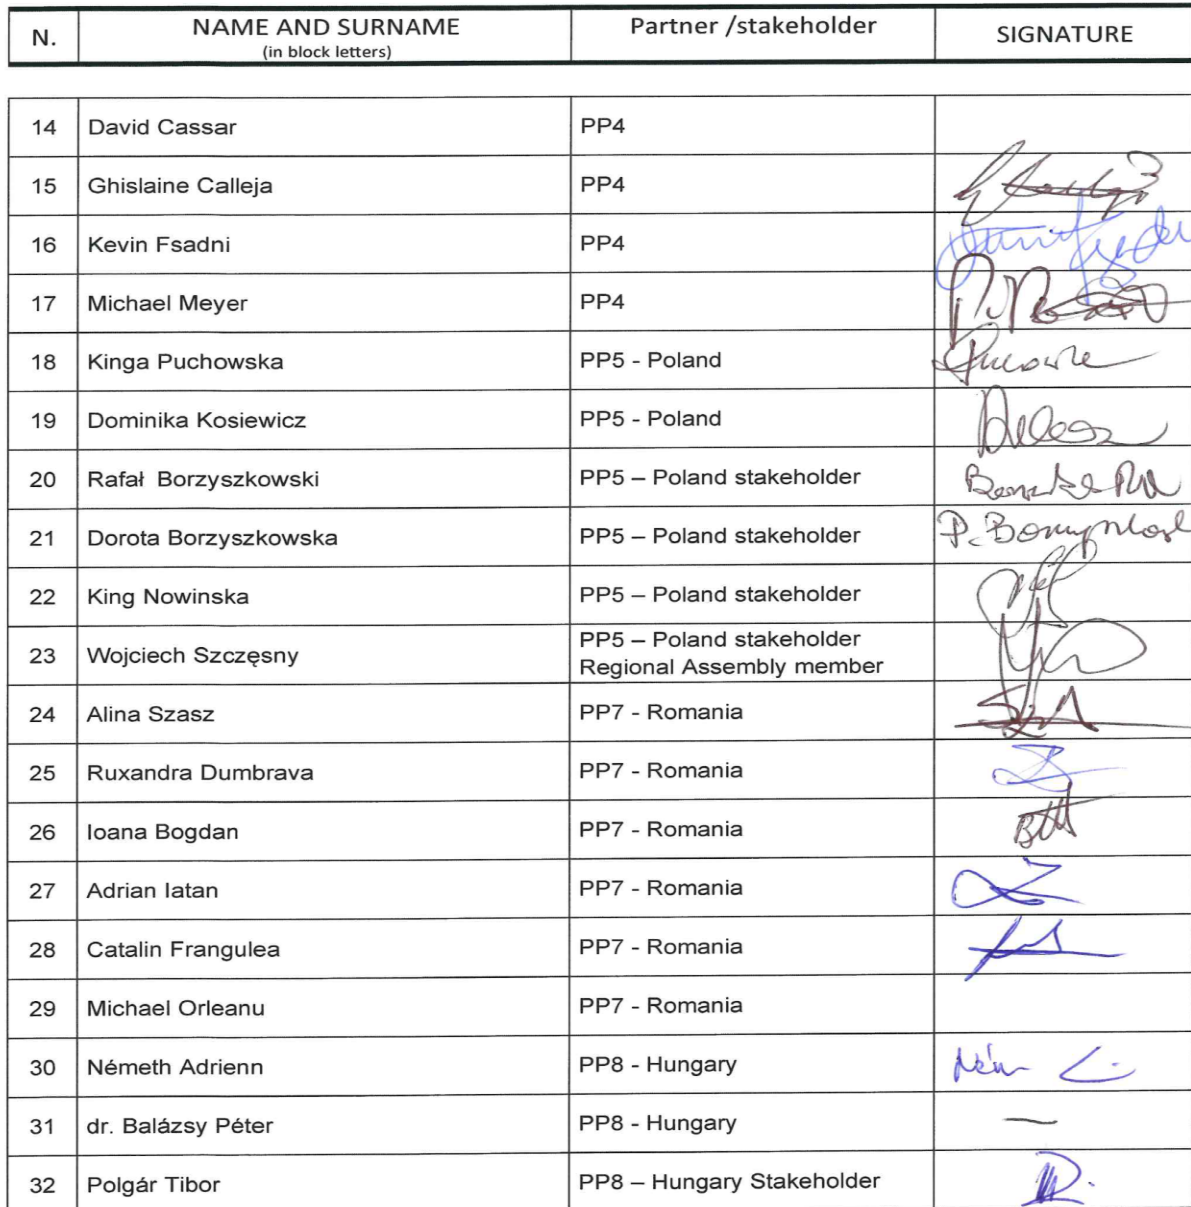 N. NAME AND SURNAME Partner /stakeholder SIGNATURE
(in block letters)
14 David Cassar PP4
15 Ghislaine Calleja PP4
16 Kevin Fsadni PP4
17 Michael Meyer PP4
18 Kinga Puchowska PP5 - Poland
19 Dominika Kosiewicz PP5 - Poland
20 Rafał Borzyszkowski PP5 – Poland stakeholder
21 Dorota Borzyszkowska PP5 – Poland stakeholder
22 King Nowinska PP5 – Poland stakeholder
23 Wojciech Szczęsny PP5 – Poland stakeholder
Regional Assembly member
24 Alina Szasz PP7 - Romania
25 Ruxandra Dumbrava PP7 - Romania
26 Ioana Bogdan PP7 - Romania
27 Adrian Iatan PP7 - Romania
28 Catalin Frangulea PP7 - Romania
29 Michael Orleanu PP7 - Romania
30 Németh Adrienn PP8 - Hungary
31 dr. Balázsy Péter PP8 - Hungary —
32 Polgár Tibor PP8 – Hungary Stakeholder